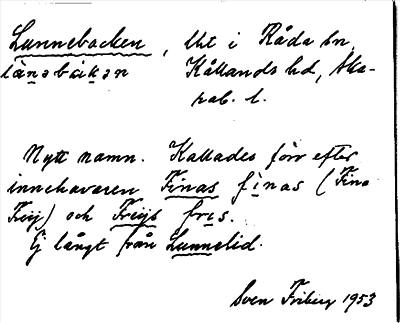 Lunnebacken, lht i Råda sn,
lὰnabakan Kållands hd, Ska-
rab. l.
Nytt namn. Kallades förr efter
innehavaren Finas finas (Fina
Frij) och Frijs fris.
Ej långt från Lunnelid.
Sven Friberg 1953